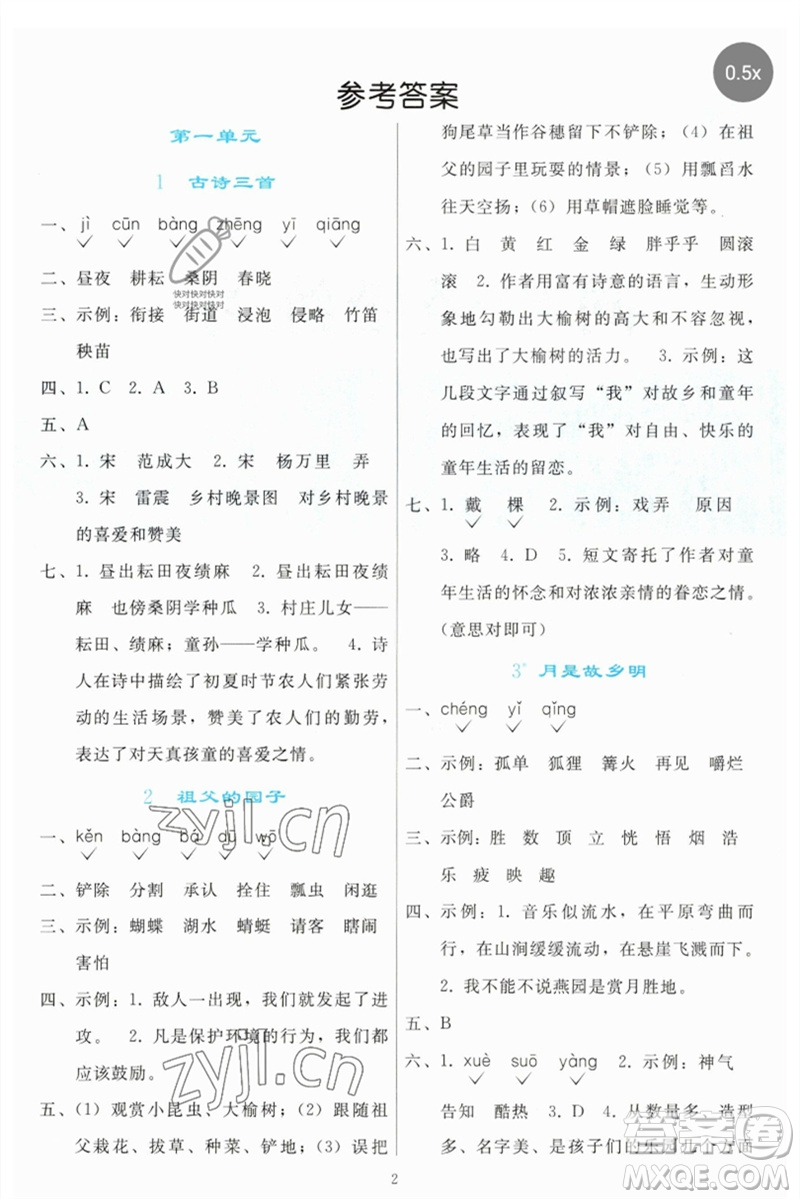 0.5x
参考答案
第一单元
1 古诗三首
一、jì cūn bàng zhēng yī qiāng
二、昼夜 耕耘 桑阴 春晓
三、示例：衔接 街道 浸泡 侵略 竹笛
秧苗
四、1. C 2. A 3. B
五、A
六、1. 宋 范成大 2. 宋 杨万里 弄
3. 宋 雷震 乡村晚景图 对乡村晚景
的喜爱和赞美
七、1. 昼出耘田夜绩麻 2. 昼出耘田夜绩
麻 也傍桑阴学种瓜 3. 村庄儿女——
耘田、绩麻；童孙——学种瓜。 4. 诗
人在诗中描绘了初夏时节农人们紧张劳
动的生活场景，赞美了农人们的勤劳，
表达了对天真孩童的喜爱之情。
2 祖父的园子
一、kěn bàng bá dū wō
二、铲除 分割 承认 拴住 瓢虫 闲逛
三、示例：蝴蝶 湖水 蜻蜓 请客 瞎闹
害怕
四、示例：1. 敌人一出现，我们就发起了进
攻。 2. 凡是保护环境的行为，我们都
应该鼓励。
五、（1）观赏小昆虫、大榆树；（2）跟随祖
父栽花、拔草、种菜、铲地；（3）误把
狗尾草当作谷穗留下不铲除；（4）在祖
父的园子里玩耍的情景；（5）用瓢舀水
往天空扬；（6）用草帽遮脸睡觉等。
六、1. 白 黄 红 金 绿 胖乎乎 圆滚
滚 2. 作者用富有诗意的语言，生动形
象地勾勒出大榆树的高大和不容忽视，
也写出了大榆树的活力。 3. 示例：这
几段文字通过叙写“我”对故乡和童年
的回忆，表现了“我”对自由、快乐的
童年生活的留恋。
七、1. 戴 棵 2. 示例：戏弄 原因
3. 略 4. D 5. 短文寄托了作者对童
年生活的怀念和对浓浓亲情的眷恋之情。
（意思对即可）
3* 月是故乡明
一、chéng yǐ qǐng
二、示例：孤单 狐狸 篝火 再见 嚼烂
公爵
三、示例：胜 数 顶 立 恍 悟 烟 浩
乐 疲 映 趣
四、示例：1. 音乐似流水，在平原弯曲而
行，在山涧缓缓流动，在悬崖飞溅而下。
2. 我不能不说燕园是赏月胜地。
五、B
六、1. xuè suō yàng 2. 示例：神气
告知 酷热 3. D 4. 从数量多、造型
多、名字美、是孩子们的乐园几个方面
2
快对快对快对
快对快对快对
zyjl.cn
zyjl.cn
答案圈
MXQE.COM